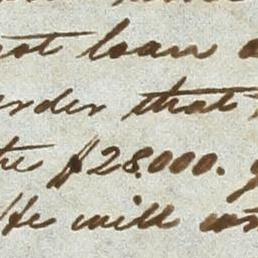 not loan
order that
the $28.000.
He will